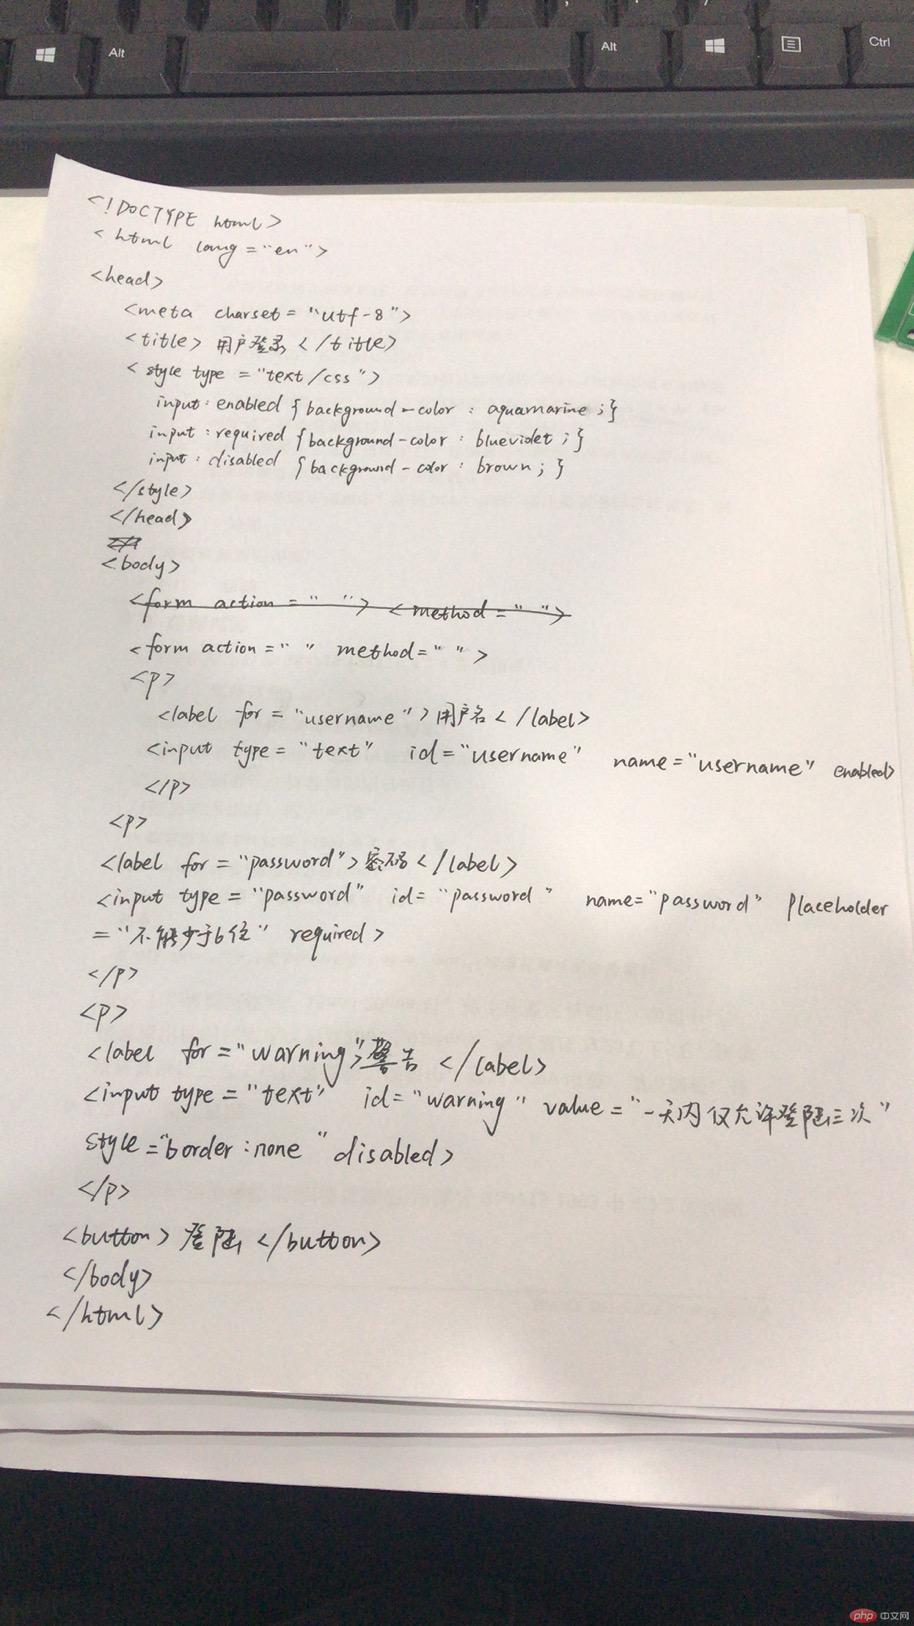 Alt
Alt
Ctrl
<!DOCTYPE html>
<html lang="en">
<head>
<meta charset="utf-8">
<title>用户登录</title>
<style type="text/css">
input:enabled{background-color:aquamarine;}
input:required{background-color:blueviolet;}
input:disabled{background-color:brown;}
</style>
</head>
<body>
<form action=" "> <method=" ">
<form action=" " method=" ">
<p>
<label for="username">用户名</label>
<input type="text" id="username" name="username" enabled>
</p>
<p>
<label for="password">密码</label>
<input type="password" id="password" name="password" placeholder
="不能少于6位" required>
</p>
<p>
<label for="warning">警告</label>
<input type="text" id="warning" value="一天内仅允许登陆三次"
style="border:none" disabled>
</p>
<button>登陆</button>
</body>
</html>
php 中文网